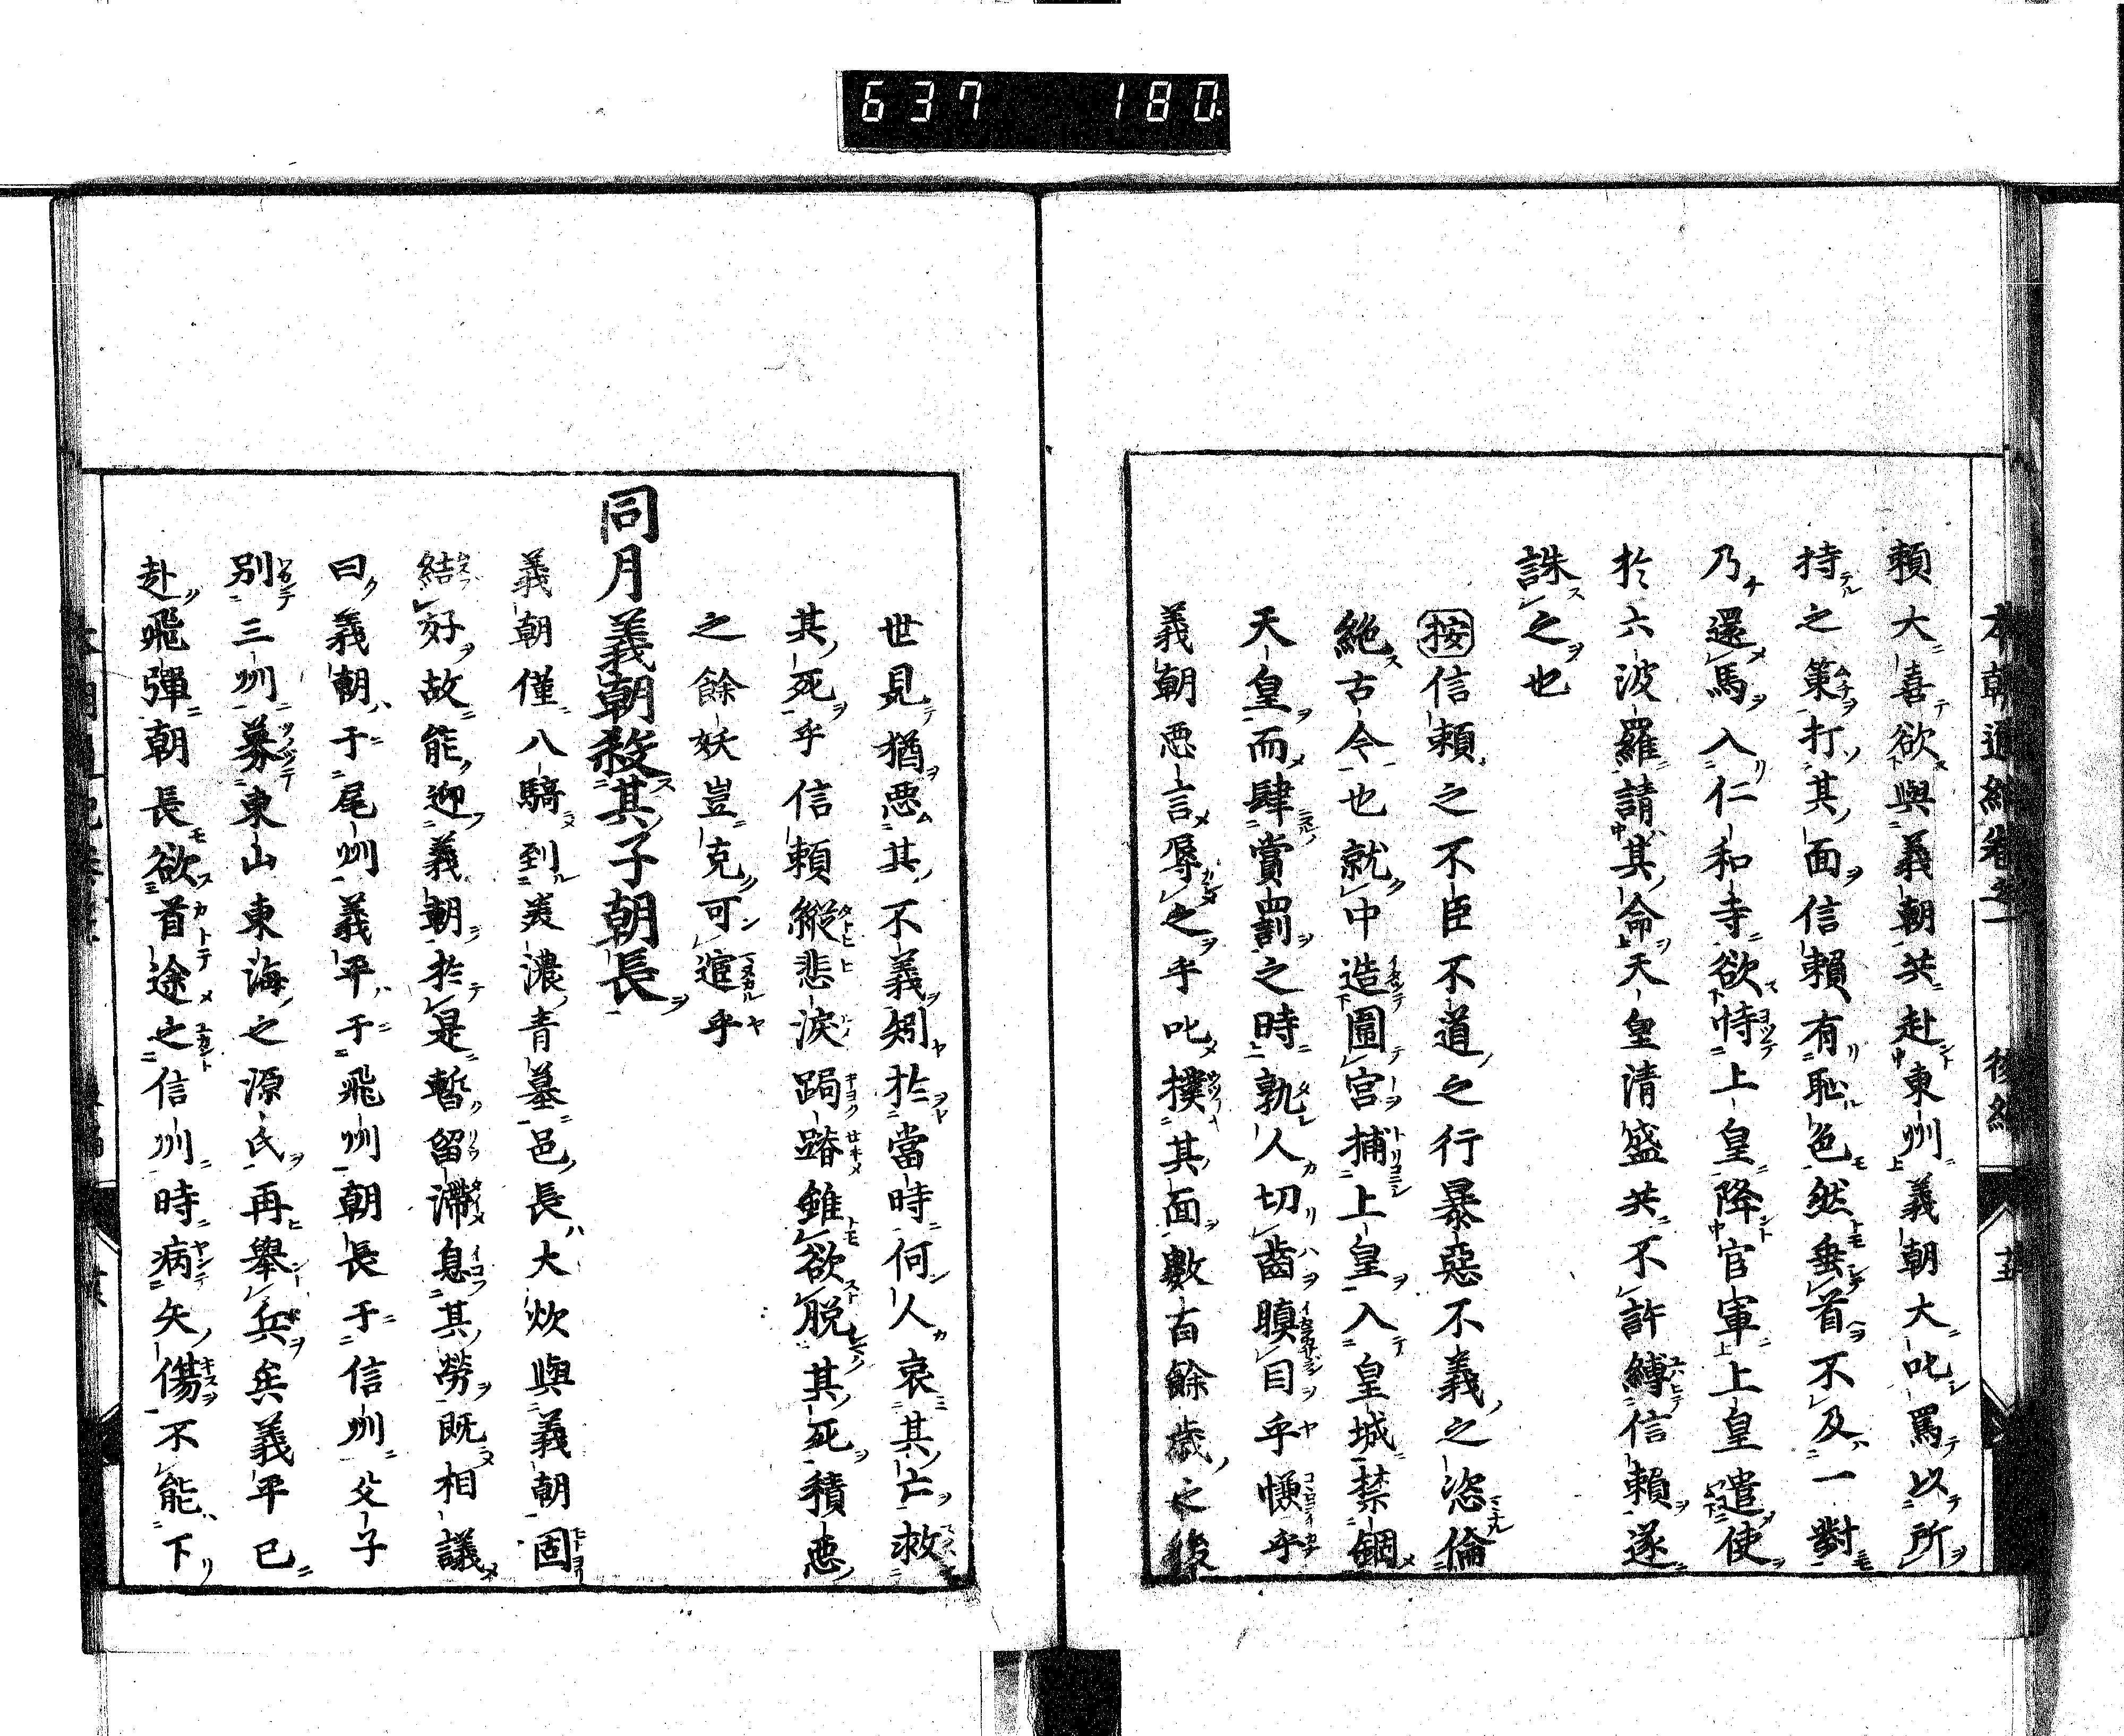 637 180
頼大喜欲與義朝共赴東州義朝大叱罵以所
持之策打其面信頼有恥色然垂首不及一對
乃還馬入仁和寺欲恃上皇降官軍上皇遣使
於六波羅請其命天皇清盛共不許縛信頼遂
誅之也
按信頼之不臣不道之行暴惡不義之恣倫
絶古今也就中造圍宮捕上皇入皇城禁錮
天皇而肆賞罰之時孰人切齒瞋目乎慊乎
義朝悪言辱之乎叱撲其面數百餘歳之後
世見猶悪其不義矧於當時何人哀其亡救
其死乎信頼縱悲涙跼蹐雖欲脱其死積悪
之餘妖豈克可逭乎
同月義朝殺其子朝長
義朝僅八騎到美濃青墓邑長大炊與義朝固
結好故能迎義朝於是暫留滯息其勞既相議
曰義朝于尾州義平于飛州朝長于信州父子
別三州募東山東海之源氏再舉兵矣義平已
赴飛彈朝長欲首途之信州時病矢傷不能下